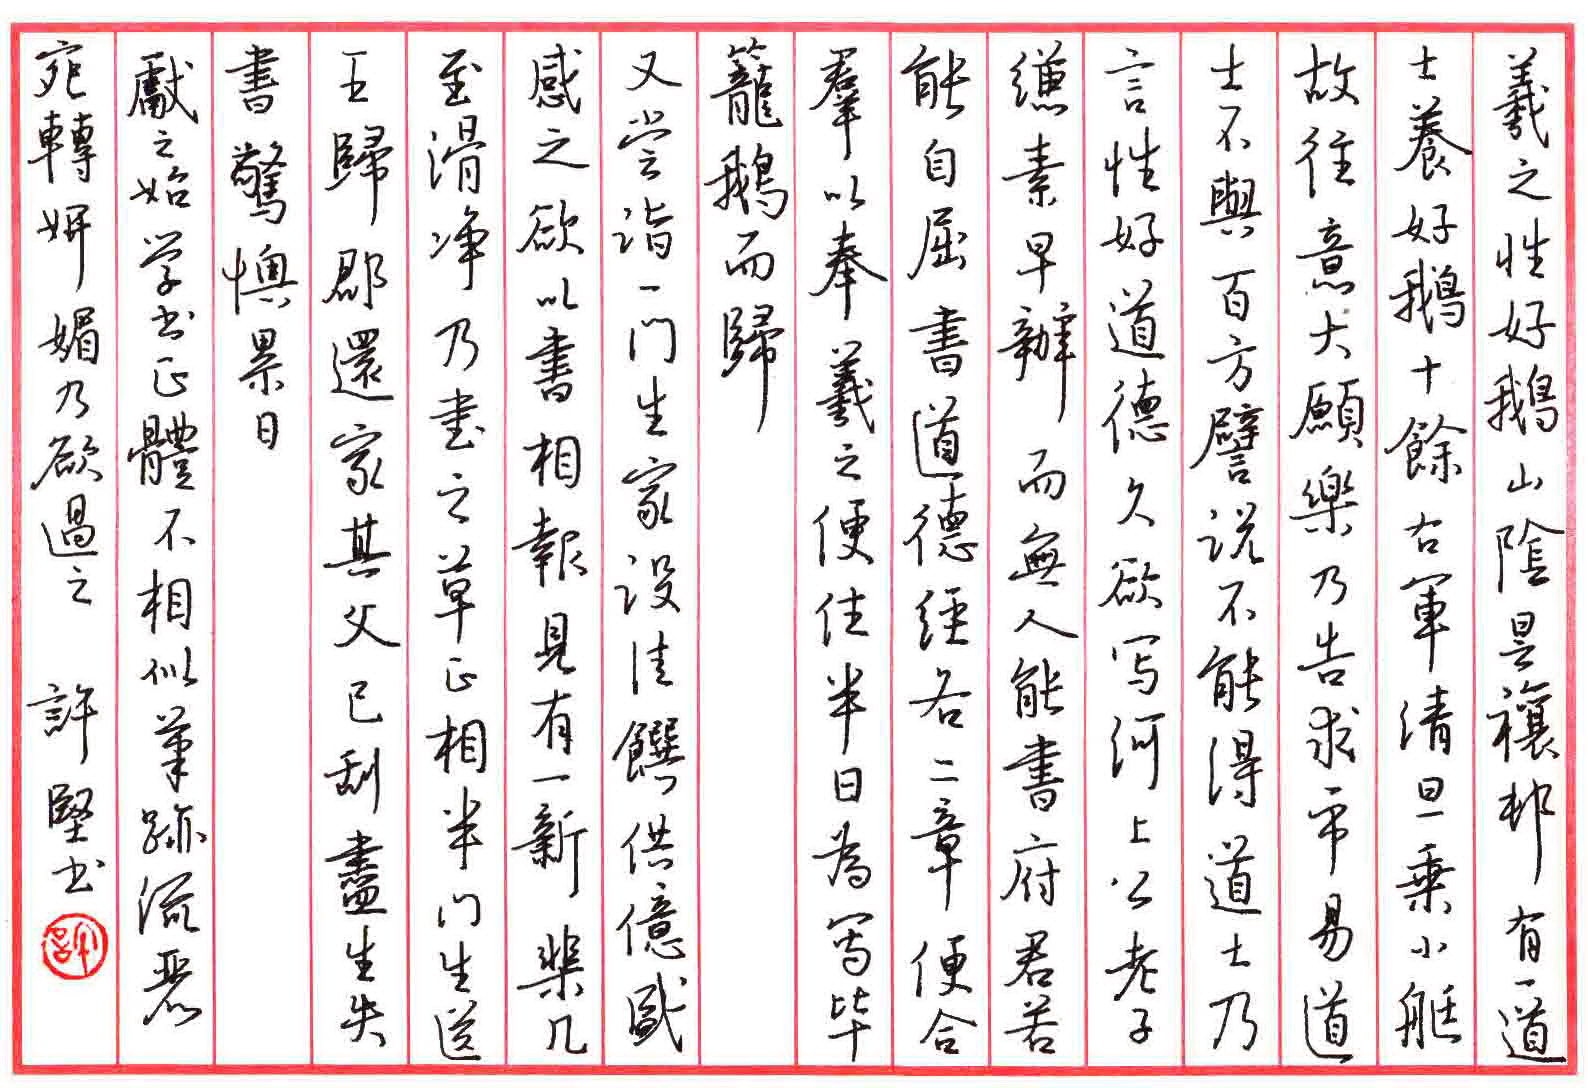 羲之性好鵝山陰曇禳邨有一道
士養好鵝十餘右軍清旦乗小艇
故往意大願樂乃告求市易道
士不與百方譬説不能得道士乃
言性好道德久欲写河上公老子
縑素早辦而無人能書府君若
能自屈書道德經各二章便合
羣以奉羲之便住半日為寫毕
籠鵝而歸
又尝诣一门生家设佳饌供億盛
感之欲以書相報見有一新棐几
至滑净乃书之草正相半门生送
王歸郡還家其父已刮盡生失
書驚懊累日
獻之始学书正體不相似筆跡流怿
宛轉妍媚乃欲過之 許堅书